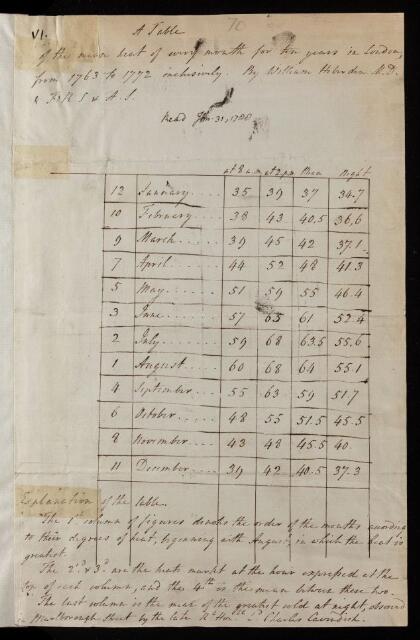 VI.
70
A Table
of the mean heat of every month for ten years in London,
from 1763 to 1772 inclusively. By William Heberden M.D.
& F.R.S & A.S.
Read Jan. 31, 1788
at 8 a.m at 2 p.m Mean Night
12 January.... 35 39 37 34.7
10 February.... 38 43 40.5 36.6
9 March.... 39 45 42 37.1
7 April...... 44 52 48 41.3
5 May...... 51 59 55 46.4
3 June..... 57 65 61 52.4
2 July...... 59 68 63.5 55.6
1 August.... 60 68 64 55.1
4 September.... 55 63 59 51.7
6 October.... 48 55 51.5 45.5
8 November.... 43 48 45.5 40.
11 December.... 39 42 40.5 37.3
Explanation of the table.
The 1st column of figures denotes the order of the months according
to their degrees of heat, beginning with August, in which the heat is
greatest.
The 2d & 3d are the heats markt at the hour expressed at the
top of each column, and the 4th is the mean between these two.
The last column is the mean of the greatest cold at night, observed
in Marlborough Street by the late Rt Honble Ld Charles Cavendish.